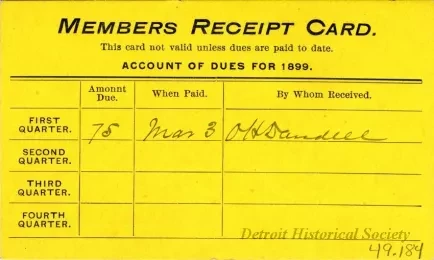 MEMBERS RECEIPT CARD.
This card not valid unless dues are paid to date.
ACCOUNT OF DUES FOR 1899.
Amonnt Due. When Paid. By Whom Received.
FIRST QUARTER. 75 Mar 3 O H Dandell
SECOND QUARTER.
THIRD QUARTER.
FOURTH QUARTER.
Detroit Historical Society
49.184